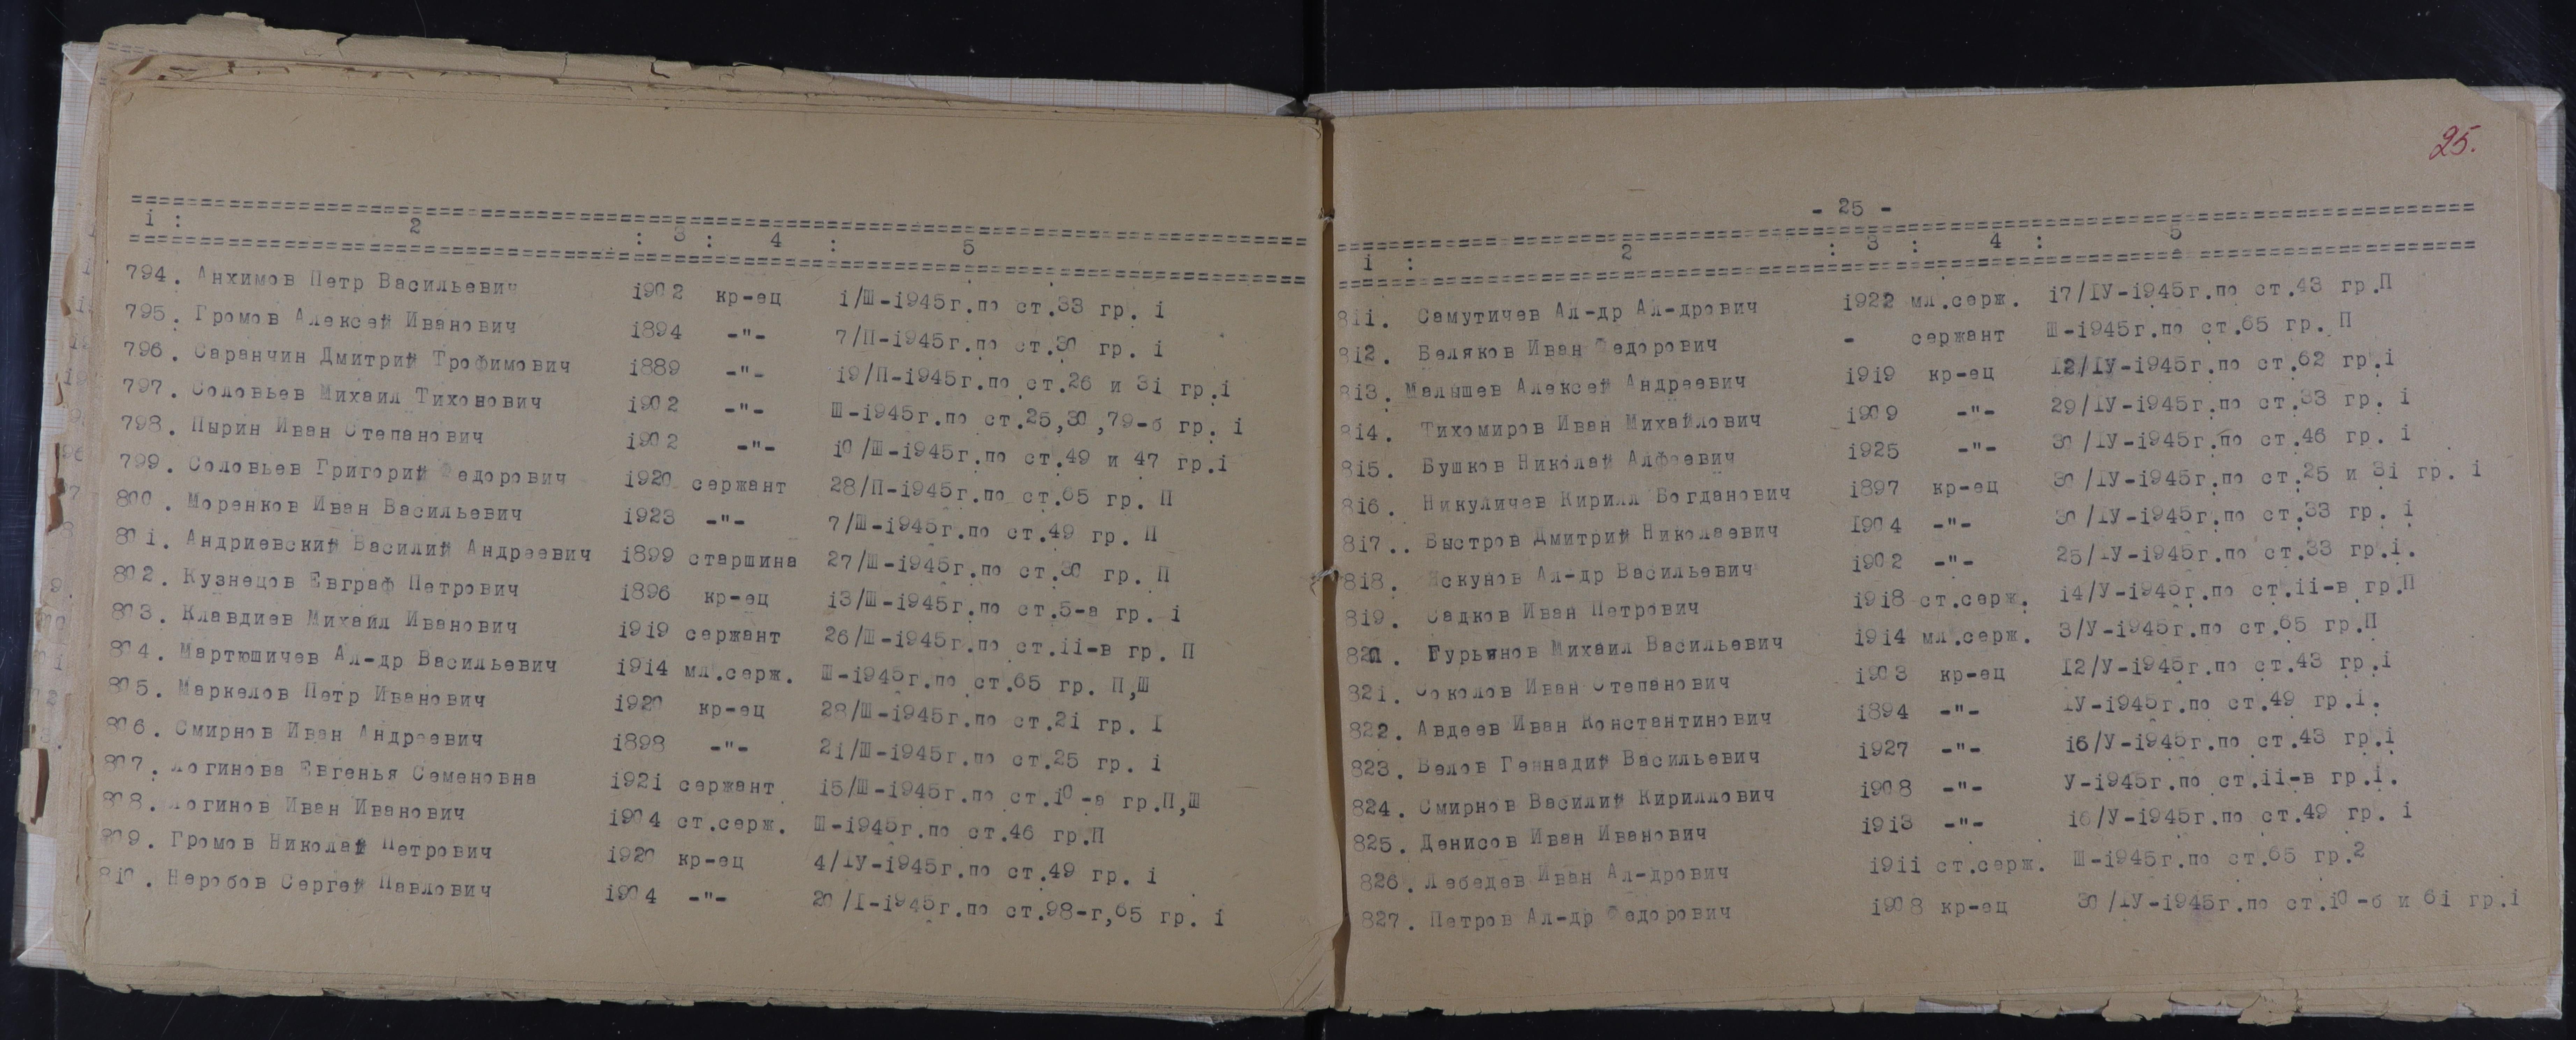 1 : 2 : 3 : 4 : 5
794. Анхимов Петр Васильевич 1902 кр-ец 1/Ш-1945г.по ст.33 гр. 1
795. Громов Алексей Иванович 1894 -"- 7/П-1945г.по ст.30 гр. 1
796. Саранчин Дмитрий Трофимович 1889 -"- 19/П-1945г.по ст.26 и 31 гр.1
797. Соловьев Михаил Тихонович 1902 -"- Ш-1945г.по ст.25,30,79-б гр. 1
798. Пырин Иван Степанович 1902 -"- 10/Ш-1945г.по ст.49 и 47 гр.1
799. Соловьев Григорий Федорович 1920 сержант 28/П-1945г.по ст.65 гр. П
800. Моренков Иван Васильевич 1923 -"- 7/Ш-1945г.по ст.49 гр. П
801. Андриевский Василий Андреевич 1899 старшина 27/Ш-1945г.по ст.30 гр. П
802. Кузнецов Евграф Петрович 1896 кр-ец 13/Ш-1945г.по ст.5-а гр. 1
803. Клавдиев Михаил Иванович 1919 сержант 26/Ш-1945г.по ст.11-в гр. П
804. Мартюшичев Ал-др Васильевич 1914 мл.серж. Ш-1945г.по ст.65 гр. П,Ш
805. Маркелов Петр Иванович 1920 кр-ец 28/Ш-1945г.по ст.21 гр. I
806. Смирнов Иван Андреевич 1898 -"- 21/Ш-1945г.по ст.25 гр. 1
807. Логинова Евгенья Семеновна 1921 сержант 15/Ш-1945г.по ст.10-а гр.П,Ш
808. Логинов Иван Иванович 1904 ст.серж. Ш-1945г.по ст.46 гр.П
809. Громов Николай Петрович 1920 кр-ец 4/IУ-1945г.по ст.49 гр. 1
810. Неробов Сергей Павлович 1904 -"- 20/I-1945г.по ст.98-г,65 гр. 1
25.
- 25 -
1 : 2 : 3 : 4 : 5
811. Самутичев Ал-др Ал-дрович 1922 мл.серж. 17/IУ-1945г.по ст.43 гр.П
812. Беляков Иван Федорович - сержант Ш-1945г.по ст.65 гр. П
813. Малышев Алексей Андреевич 1919 кр-ец 12/IУ-1945г.по ст.62 гр.1
814. Тихомиров Иван Михайлович 1909 -"- 29/IУ-1945г.по ст.33 гр. 1
815. Бушков Николай Алфеевич 1925 -"- 30/IУ-1945г.по ст.46 гр. 1
816. Никуличев Кирилл Богданович 1897 кр-ец 30/IУ-1945г.по ст.25 и 31 гр. 1
817.. Быстров Дмитрий Николаевич 1904 -"- 30/IУ-1945г.по ст.33 гр. 1
818. Искунов Ал-др Васильевич 1902 -"- 25/IУ-1945г.по ст.33 гр.1.
819. Садков Иван Петрович 1918 ст.серж. 14/У-1945г.по ст.11-в гр.П
820. Гурьянов Михаил Васильевич 1914 мл.серж. 3/У-1945г.по ст.65 гр.П
821. Соколов Иван Степанович 1903 кр-ец 12/У-1945г.по ст.43 гр.1
822. Авдеев Иван Константинович 1894 -"- IУ-1945г.по ст.49 гр.1.
823. Белов Геннадий Васильевич 1927 -"- 16/У-1945г.по ст.43 гр.1
824. Смирнов Василий Кириллович 1908 -"- У-1945г.по ст.11-в гр.1.
825. Денисов Иван Иванович 1913 -"- 16/У-1945г.по ст.49 гр. 1
826. Лебедев Иван Ал-дрович 1911 ст.серж. Ш-1945г.по ст.65 гр.2
827. Петров Ал-др Федорович 1908 кр-ец 30/IУ-1945г.по ст.10-б и 61 гр.1